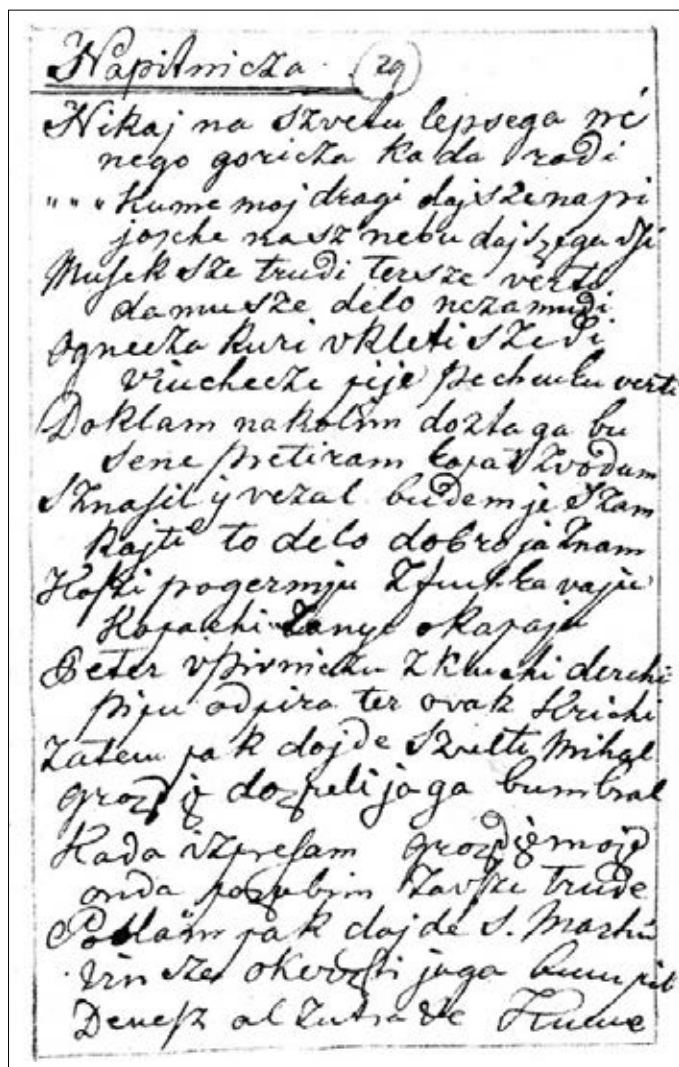 Napitnicza 29
Nikaj na szvetu lepsega né
nego goricza kada rodi
" " " Kume moj dragi daj sze napi
josche nasz nebu daj szega
Musek sze trudi ter sze verti
da mu sze delo nezamudi
Ognecza kuri v kleti szedi
vruchecze pije pechenku verti
Doklam na kolim doztaga bu
szvodum
Sznasil y vezal budem je szam
Kajti to delo dobro ja znam
Koszi pogermju zfuchkavaju
Kopachi okapaju
Peter v pivniczu z kluchi derchi
pipu odpira ter ovak krichi
Zatem pak dojde szveti Mihal
grozdje dozreli ja ga bum bral
Kada szpresam grozdje moje
onda pozabim za vsze trude
Potlam pak dojde S. Martin
vin sze okerszti ja ga bum pil
Denesz al zutra Kume